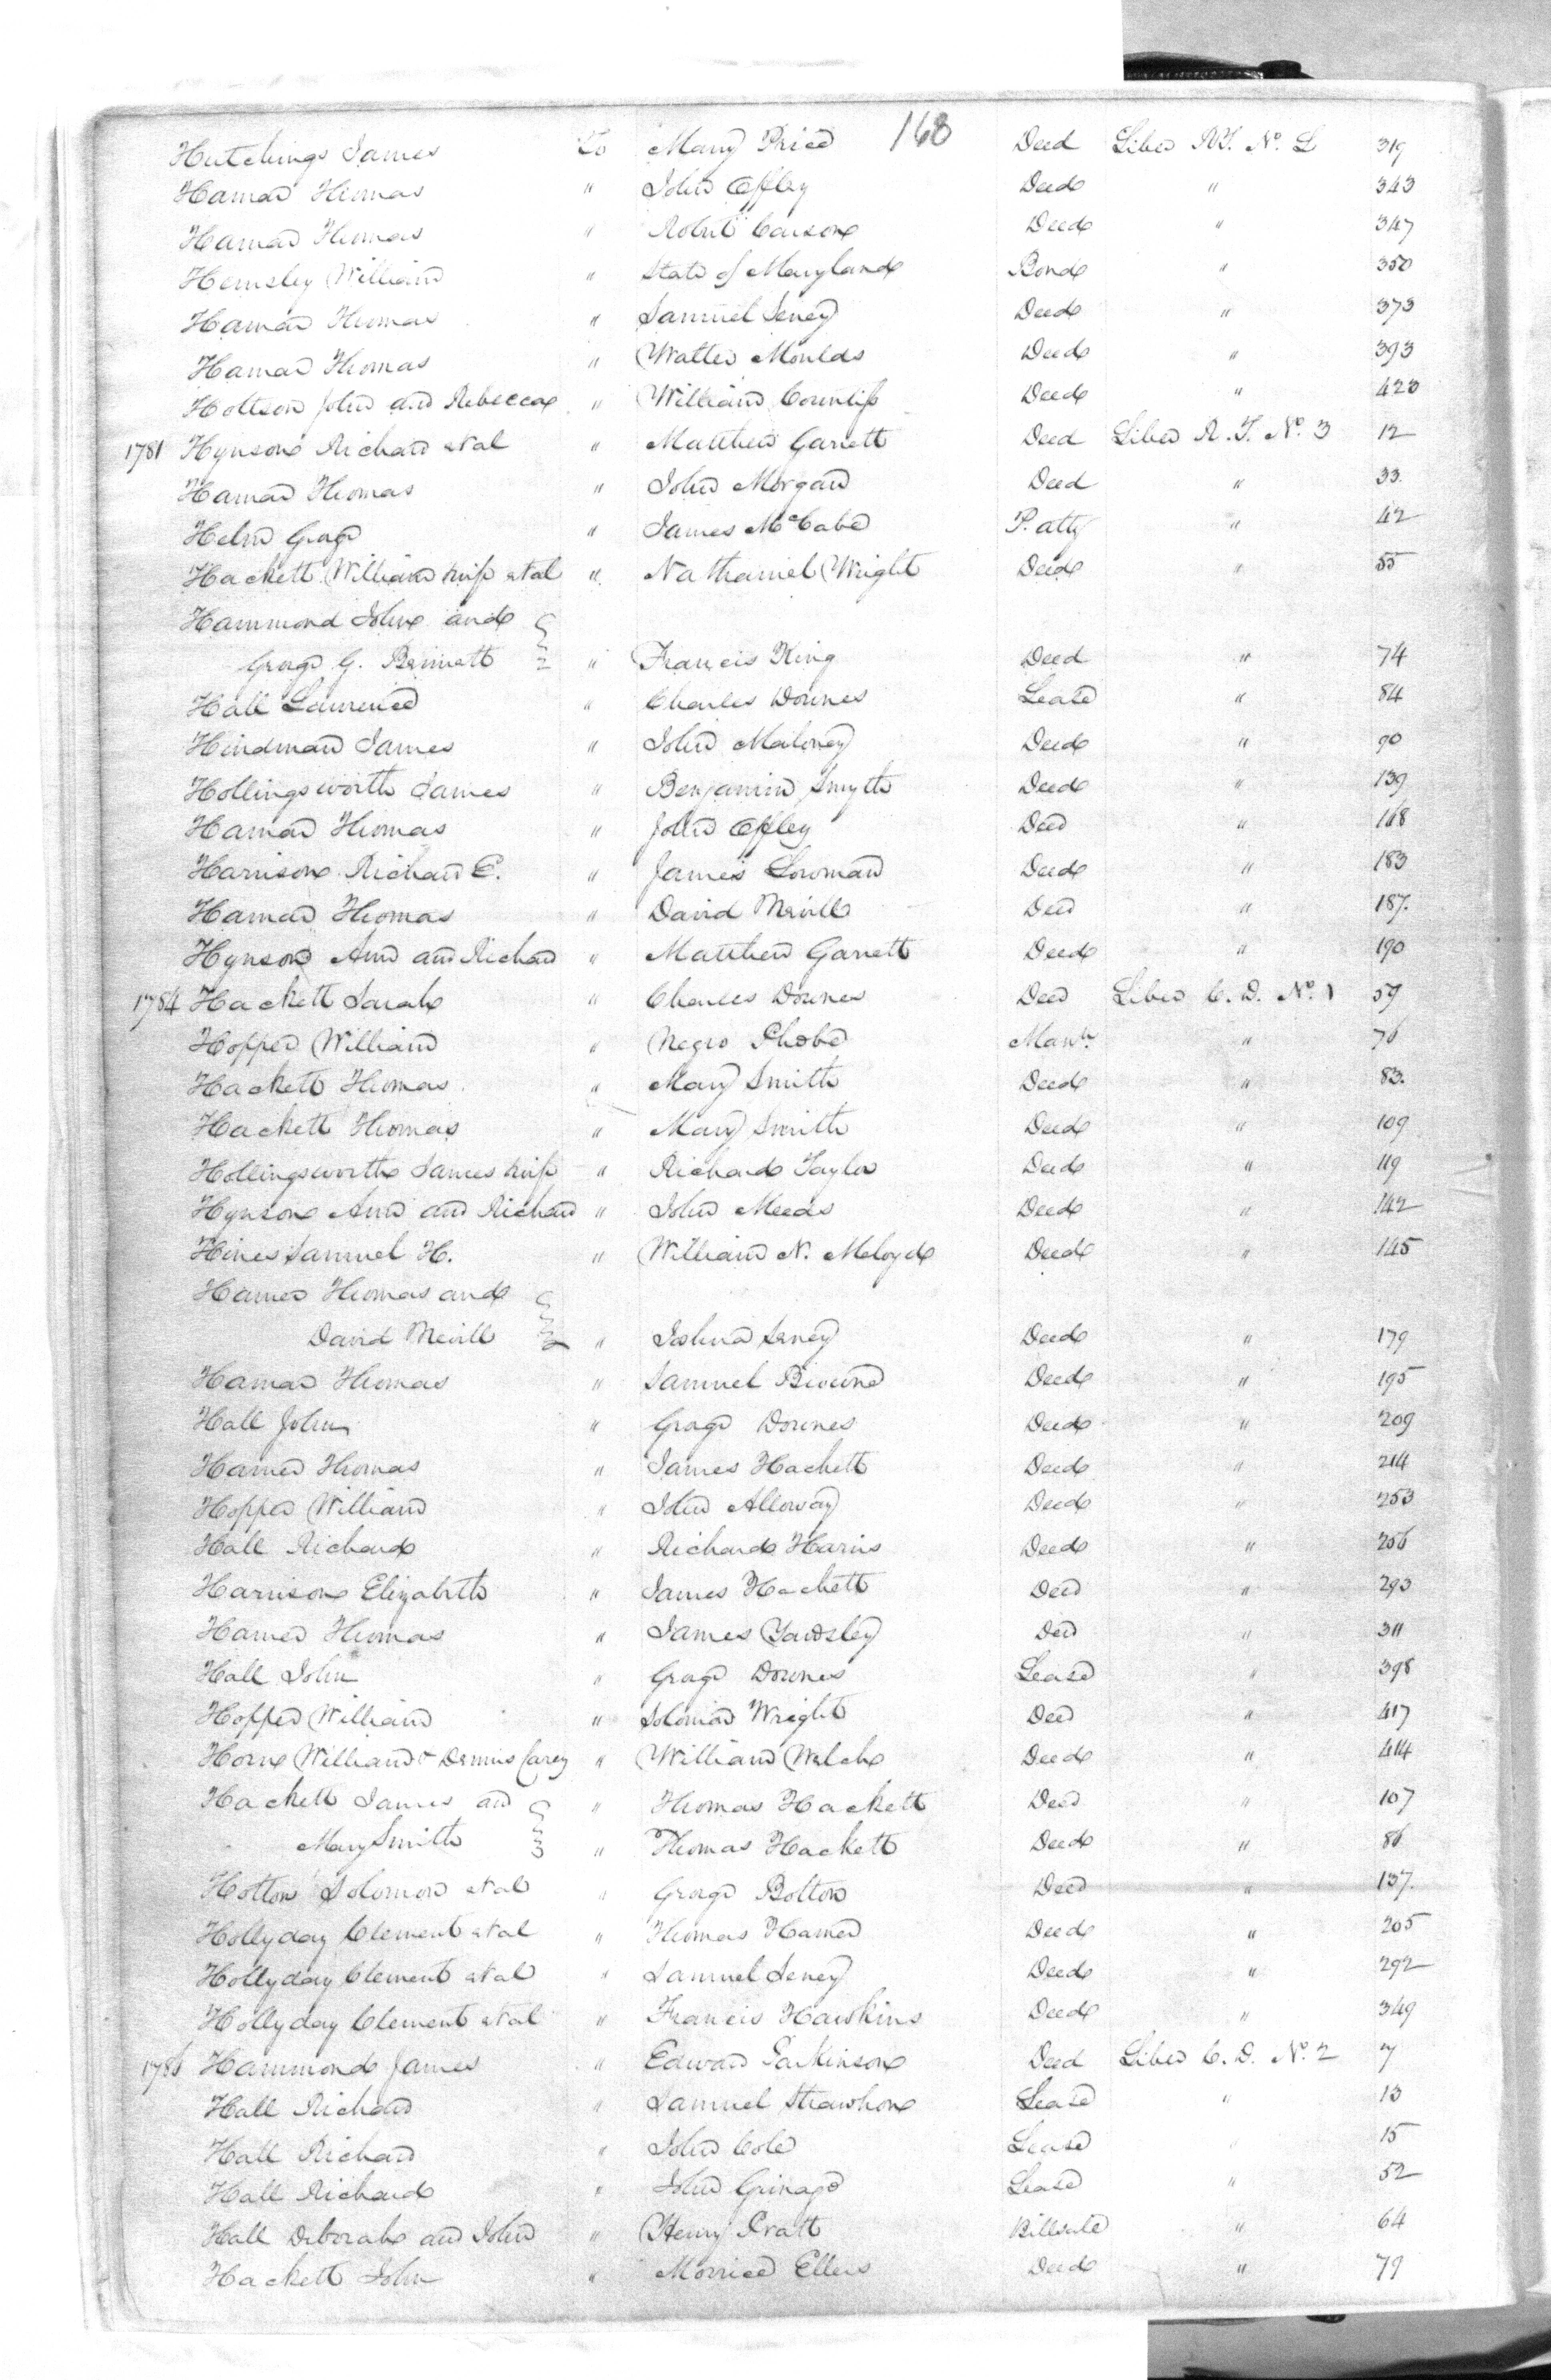 168
Hutchings James To Mary Price Deed Liber RT. No. L 319
Hamar Thomas " John Offley Deed " 343
Hamar Thomas " Robert Carson Deed " 347
Hemsley William " State of Maryland Bond " 350
Hamar Thomas " Samuel Seney Deed " 373
Hamar Thomas " Walter Moulds Deed " 393
Holtson John and Rebecca " William Counliss Deed " 423
1781 Hynson Richard et al " Matthew Garrett Deed Liber R. T. No. 3 12
Hamar Thomas " John Morgan Deed " 33.
Helm George " James McCabe P. atty " 42
Hackett William & wife et al " Nathaniel Wright Deed " 55
Hammond John and
George G. Bennett " Francis King Deed " 74
Hall Laurence " Charles Downes Lease " 84
Hindman James " John Maloney Deed " 90
Hollingsworth James " Benjamin Smyth Deed " 139
Hamar Thomas " John Offley Deed " 168
Harrison Richard E. " James Lowman Deed " 183
Hamar Thomas " David Nevill Deed " 187.
Hynson Ann and Richard " Matthew Garrett Deed " 190
1784 Hackett Sarah " Charles Downes Deed Liber C. D. No. 1 59
Hopper William " Negro Phobe Mann. " 76
Hackett Thomas " Mary Smith Deed " 83.
Hackett Thomas " Mary Smith Deed " 109
Hollingsworth James & wife " Richard Taylor Deed " 119
Hynson Ann and Richard " John Meeds Deed " 142
Hines Samuel H. " William N. Meloyd Deed " 145
Hamer Thomas and
David Nevill " Joshua Seney Deed " 179
Hamar Thomas " Samuel Browne Deed " 195
Hall John " George Downes Deed " 209
Hamer Thomas " James Hackett Deed " 214
Hopper William " John Alloway Deed " 253
Hall Richard " Richard Harris Deed " 256
Harrison Elizabeth " James Hackett Deed " 293
Hamer Thomas " James Yawdsley Deed " 311
Hall John " George Downes Lease " 398
Hopper William " Solomon Wright Deed " 417
Horn William & Dennis Carey " William Welch Deed " 414
Hackett James and " Thomas Hackett Deed " 107
Mary Smith " Thomas Hackett Deed " 86
Hotton Solomon et al " George Bolton Deed " 137.
Hollyday Clement et al " Thomas Hamer Deed " 205
Hollyday Clement et al " Samuel Seney Deed " 292
Hollyday Clement et al " Francis Hawkins Deed " 349
1786 Hammond James " Edward Parkinson Deed Liber C. D. No. 2 7
Hall Richard " Samuel Strawhon Lease " 13
Hall Richard " John Cole Lease " 15
Hall Richard " John Grinage Lease " 52
Hall Deborah and John " Henry Pratt Billsale " 64
Hackett John " Morrice Ellers Deed " 79